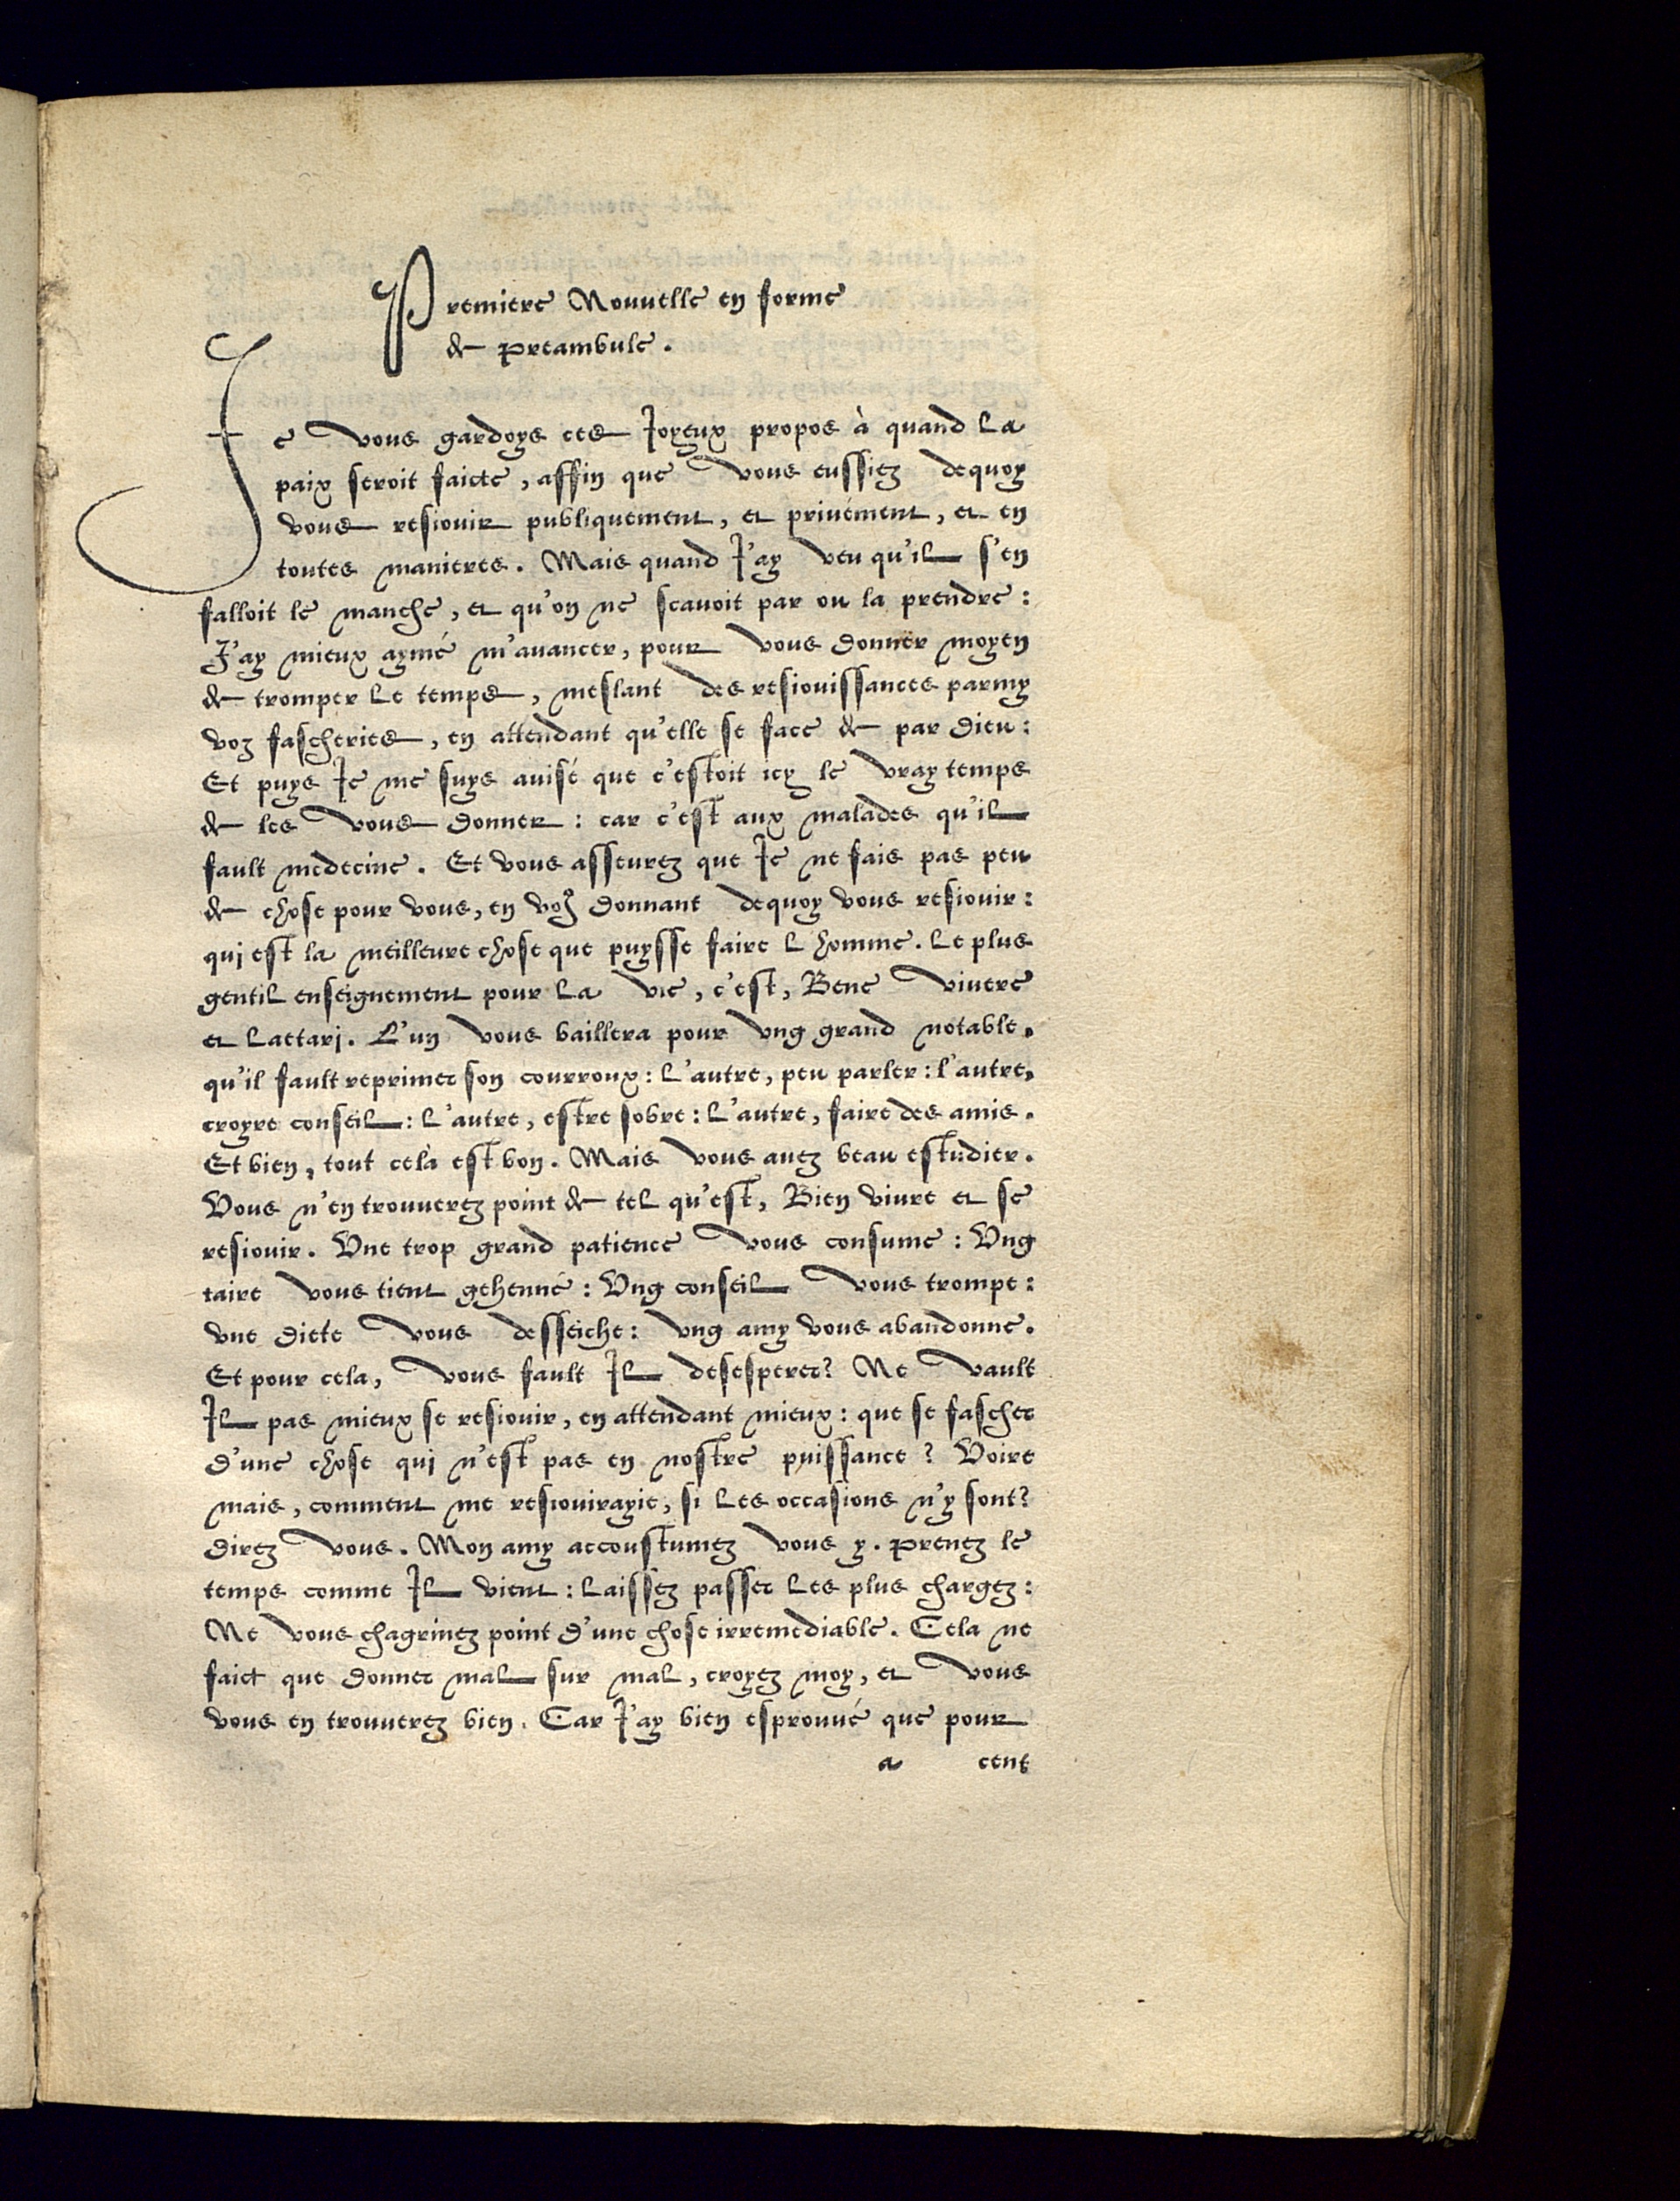 Premiere Nouuelle en forme
de preambule.
Je vous gardoys ces Joyeux propos à quand la
paix seroit faicte, affin que vous eussiez dequoy
vous resiouir publiquement, et priuément, et en
toutes manieres. Mais quand J'ay veu qu'il s'en
falloit le manche, et qu'on ne scauoit par ou la prendre:
J'ay mieux aymé m'auancer, pour vous donner moyen
de tromper le temps, meslant des resiouissances parmy
voz fascheries, en attendant qu'elle se face de par Dieu:
Et puys Je me suys auisé que c'estoit icy le vray temps
de les vous donner: car c'est aux malades qu'il
fault medecine. Et vous asseurez que Je ne fais pas peu
de chose pour vous, en vo9 donnant dequoy vous resiouir:
qui est la meilleure chose que puysse faire l homme. Le plus
gentil enseignement pour la vie, c'est, Bene viuere
et laetari. L'un vous baillera pour vng grand notable,
qu'il fault reprimer son courroux: l'autre, peu parler: l'autre,
croyre conseil: l'autre, estre sobre: l'autre, faire des amis.
Et bien, tout celà est bon. Mais vous auez beau estudier.
Vous n'en trouuerez point de tel qu'est, Bien viure et se
resiouir. Vne trop grand patience vous consume: Vng
taire vous tient gehenné: Vng conseil vous trompe:
vne diete vous desseiche: vng amy vous abandonne.
Et pour cela, vous fault Il desesperer? Ne vault
Il pas mieux se resiouir, en attendant mieux: que se fascher
d'une chose qui n'est pas en nostre puissance? Voire
mais, comment me resiouirayie, si les occasions n'y sont?
direz vous. Mon amy accoustumez vous y. Prenez le
temps comme Il vient: laissez passer les plus chargez:
Ne vous chagrinez point d'une chose irremediable. Cela ne
faict que donner mal sur mal, croyez moy, et vous
vous en trouuerez bien. Car J'ay bien esprouué que pour
a cent